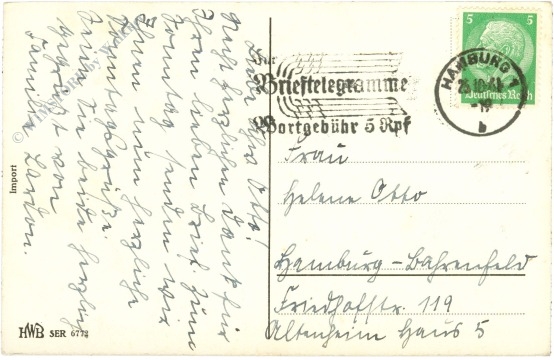 Liebe Frau Otto!
Recht herzlichen Dank für
Ihren lieben Brief. Zum
Sonntag senden wir
Ihnen nun herzliche
Sonntagsgrüße.
Seien Sie beide herzlich
gegrüßt von
Familie Lardon.
Import
HWB SER 6772
Für
Brieftelegramme
Wortgebühr 5 Rpf
HAMBURG 1
5 5
Deutsches Reich
b
Frau
Helene Otto
Hamburg-Bahrenfeld
Friedhofstr. 119
Altenheim Haus 5